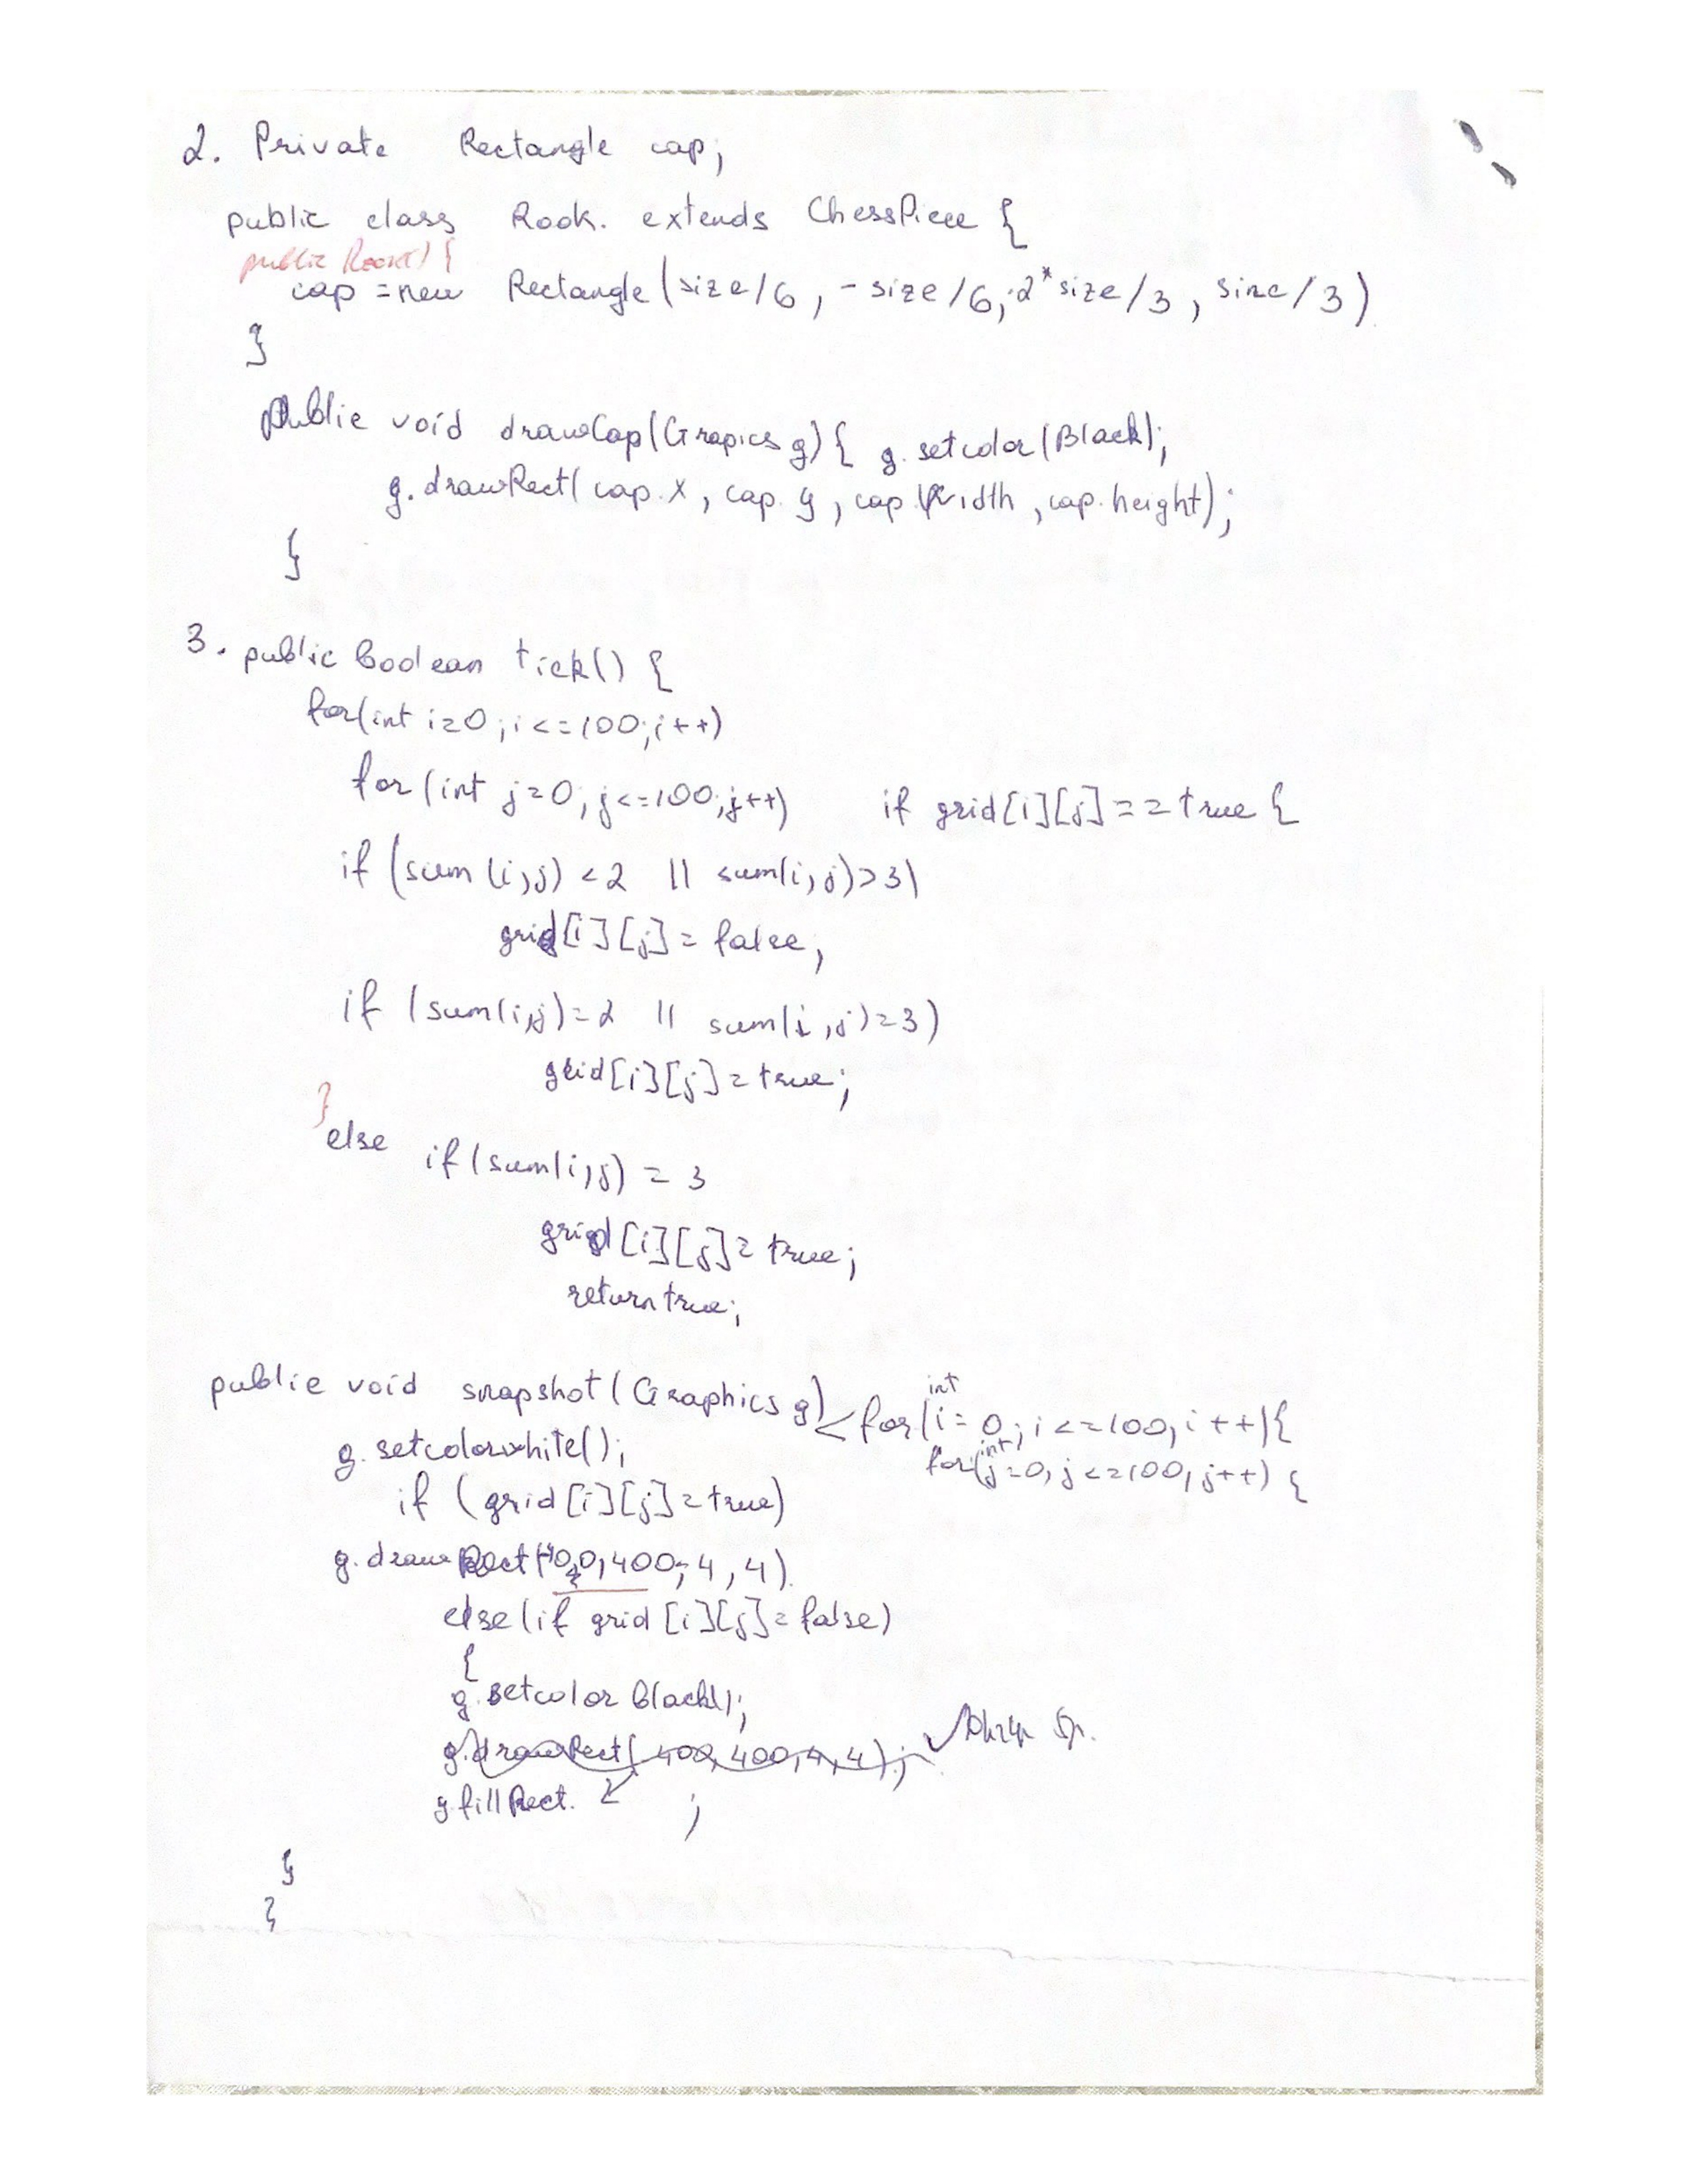 2. Private Rectangle cap;
public class Rook. extends ChessPiece {
public Rook() {
cap = new Rectangle(size/6, -size/6, 2*size/3, size/3)
}
public void drawCap(Grapics g){ g.setcolor(Black);
g.drawRect(cap.x, cap.y, cap.width, cap.height);
}
3. public boolean tick() {
for(int i=0; i<=100; i++)
for(int j=0; j<=100; j++) if grid[i][j]==true {
if (sum(i,j) <2 || sum(i,j)>3)
grid[i][j]=false;
if (sum(i,j)=2 || sum(i,j)=3)
grid[i][j]=true;
}
else if(sum(i,j) = 3
grid[i][j]=true;
return true;
public void snapshot(Graphics g) for(int i=0; i<=100; i++){
g.setcolorwhite(); for(int j=0; j<=100; j++) {
if (grid[i][j]=true)
g.drawRect( 400, 4, 4)
else(if grid[i][j]=false)
{
g.setcolor black();
g.drawRect(400, 400, 4, 4);
g.fillRect. ;
}
}